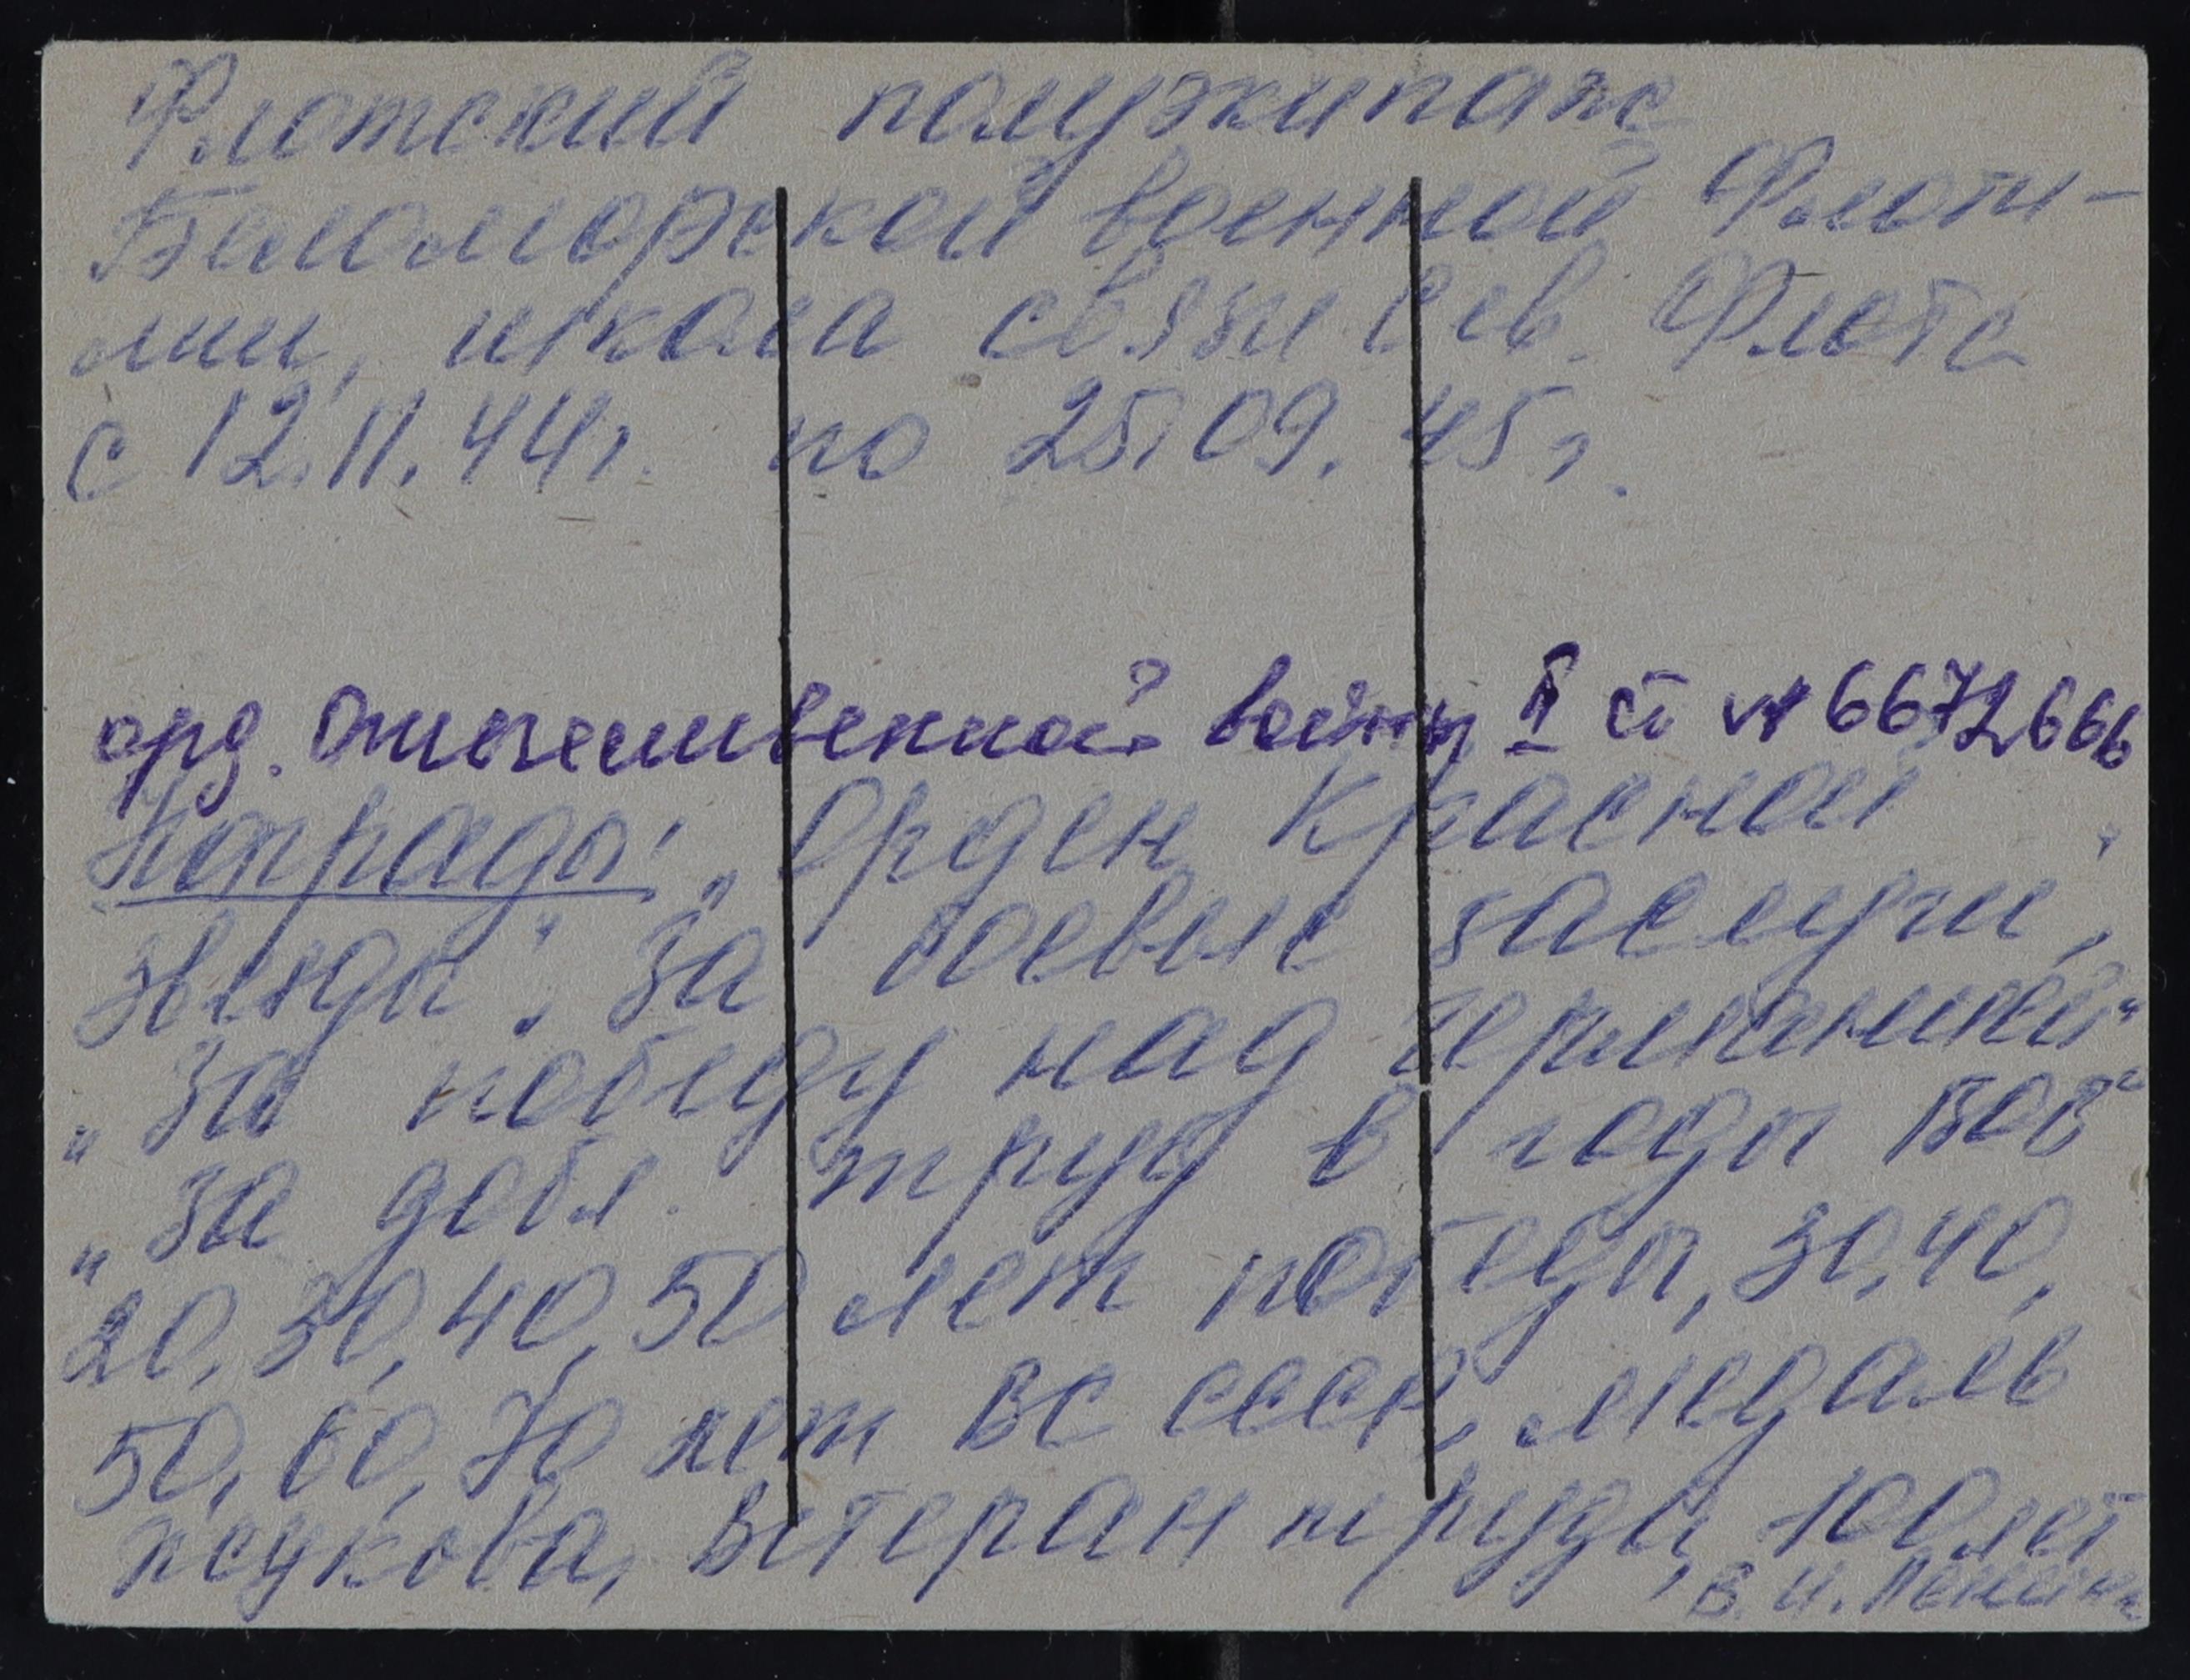 Флотский полуэкипаж
Беломорской военной Флоти-
лии, школа связи Сев. Флота
с 12.11.44г. по 25.09.45г.
орд. Отечественной войны ст № 6672666
Награды: „Орден Красной
звезды", За боевые заслуги,
„За победу над Германией"
„За добл. труд в годы ВОВ"
20, 30, 40, 50 лет победы, 30, 40,
50, 60, 70 лет ВС СССР, медаль
Жукова, Ветеран труда, 100 лет
В. И. Ленина